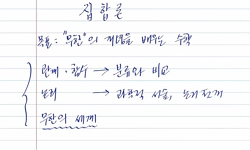 집합론
목표 : "무한"의 개념을 배우는 수학
관계 · 함수 → 분류와 비교
논리 → 과학적 사유, 논거 전개
무한의 세계